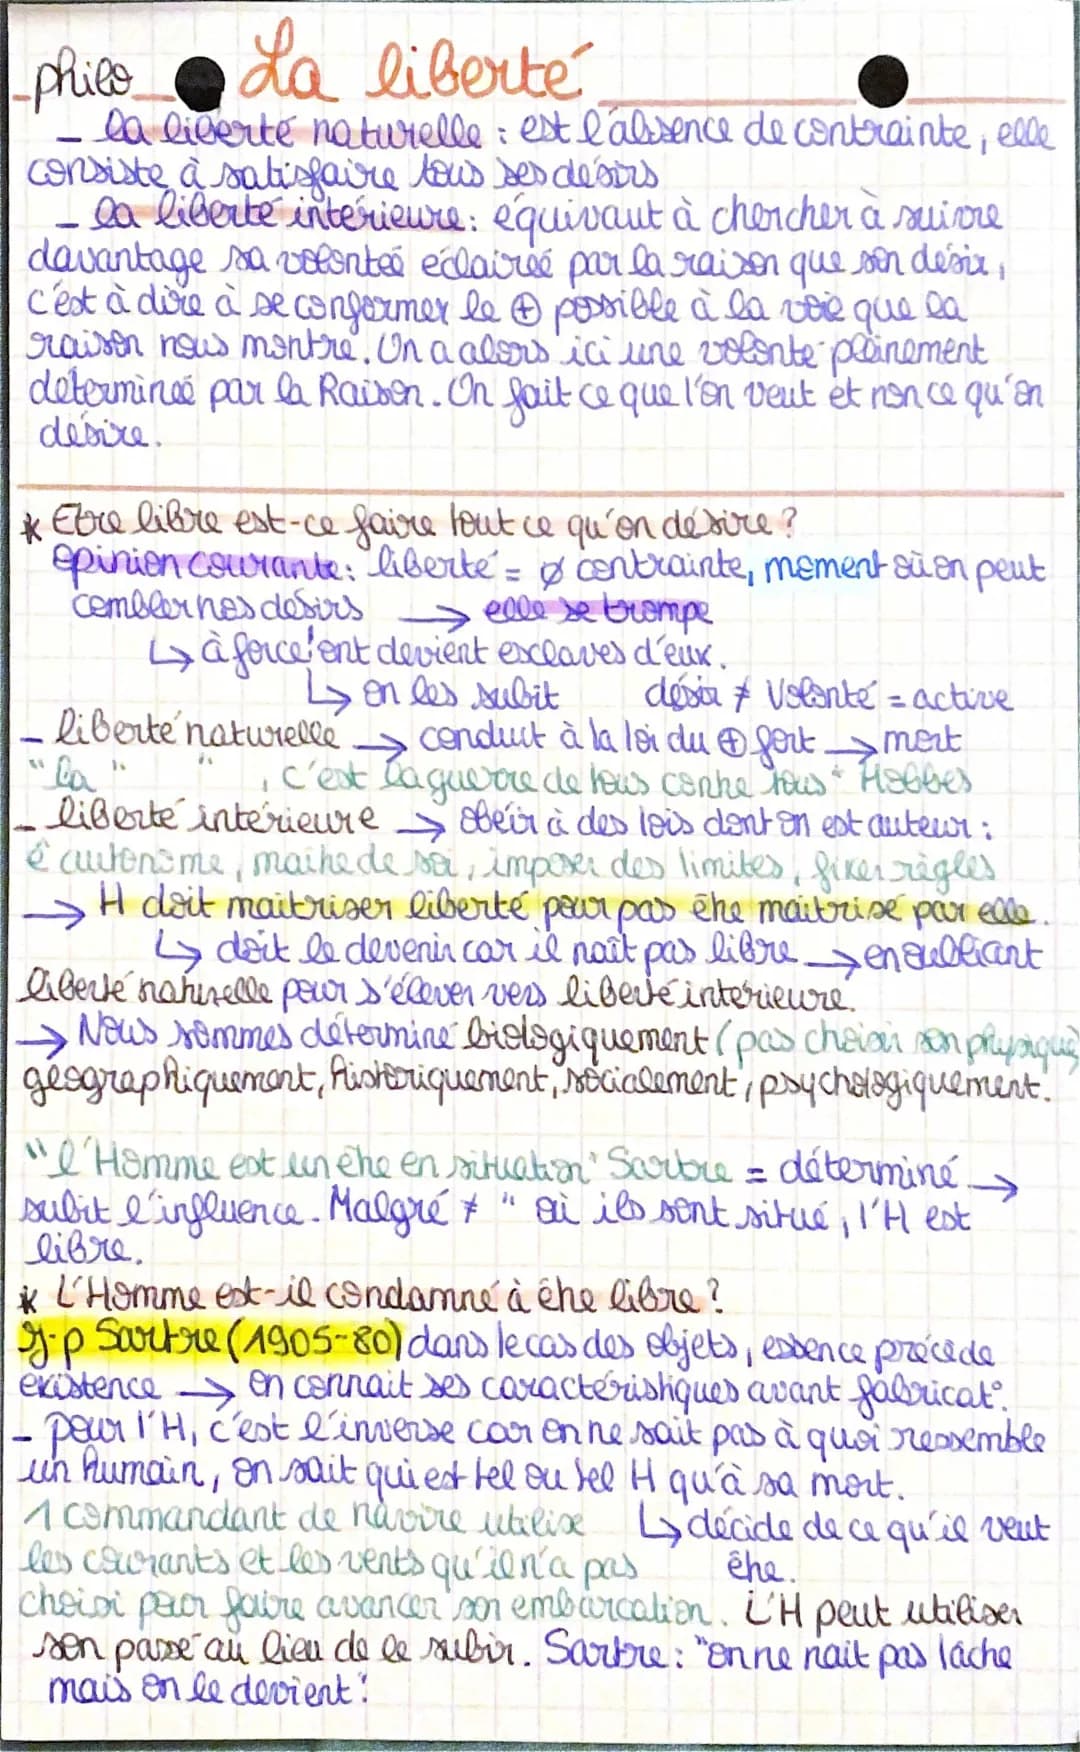 philo La liberté
- la liberté naturelle : est l'absence de contrainte, elle
consiste à satisfaire tous ses désirs
- la liberté intérieure : équivaut à chercher à suivre
davantage sa volonteé éclaireé par la raison que son désir,
c'est à dire à se conformer le ⊕ possible à la voie que la
raison nous montre. On a alors ici une volonté pleinement
determineé par la Raison. On fait ce que l'on veut et non ce qu'on
désire.
* Etre libre est-ce faire tout ce qu'on désire ?
opinion courante : liberté = ø contrainte, moment où on peut
combler nos désirs → elle se trompe
↳ à force, ont devient esclaves d'eux.
↳ on les subit désir ≠ Volonté = active
- liberté naturelle → conduit à la loi du ⊕ fort → mort
"la " " , c'est la guerre de tous contre tous" Hobbes
- liberté intérieure → obéir à des lois dont on est auteur :
ê autonome, maître de soi, imposer des limites, fixer règles
→ H doit maitriser liberté pour pas être maitrisé par elle.
↳ doit le devenir car il naît pas libre → en oubliant
liberté naturelle pour s'élever vers liberté intérieure.
→ Nous sommes déterminé biologiquement (pas choisi son physique)
géographiquement, historiquement, socialement, psychologiquement.
"l'Homme est un être en situation" Sartre = déterminé →
subit l'influence. Malgré ≠ " où ils sont situé, l'H est
libre.
* L'Homme est-il condamné à être libre ?
J-p Sartre (1905-80) dans le cas des objets, essence précède
existence → on connait ses caractéristiques avant fabricat°.
- pour l'H, c'est l'inverse car on ne sait pas à quoi ressemble
un humain, on sait qui est tel ou tel H qu'à sa mort.
1 commandant de navire utilise ↳ décide de ce qu'il veut
les courants et les vents qu'il n'a pas être.
choisi pour faire avancer son embarcation. L'H peut utiliser
son passé au lieu de le subir. Sartre : "on ne nait pas lâche
mais on le devient".